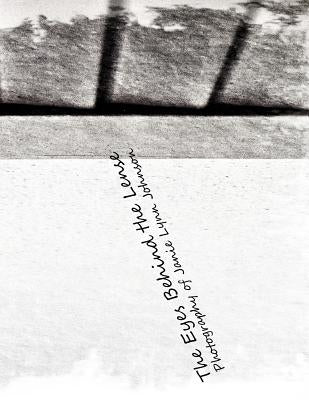 The Eyes Behind the Lense
Photography of Janie Lynn Johnson